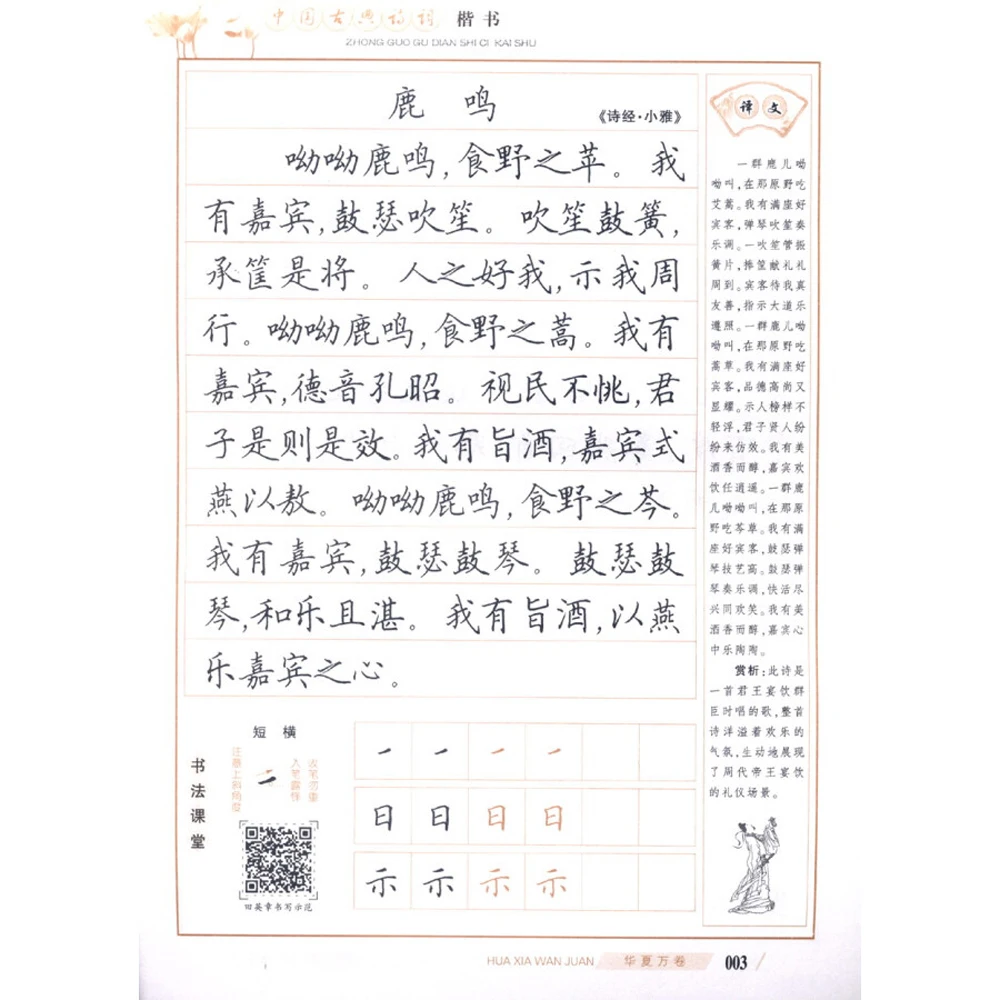 中国古典诗词 楷书
ZHONG GUO GU DIAN SHI CI KAI SHU
鹿 鸣
《诗经·小雅》
呦呦鹿鸣,食野之苹。我
有嘉宾,鼓瑟吹笙。吹笙鼓簧,
承筐是将。人之好我,示我周
行。呦呦鹿鸣,食野之蒿。我有
嘉宾,德音孔昭。视民不恌,君
子是则是效。我有旨酒,嘉宾式
燕以敖。呦呦鹿鸣,食野之芩。
我有嘉宾,鼓瑟鼓琴。鼓瑟鼓
琴,和乐且湛。我有旨酒,以燕
乐嘉宾之心。
译文
一群鹿儿呦
呦叫,在那原野吃
艾蒿。我有满座好
宾客,弹琴吹笙奏
乐调。一吹笙管振
簧片,捧筐献礼礼
周到。宾客待我真
友善,指示大道乐
遵照。一群鹿儿呦
呦叫,在那原野吃
蒿草。我有满座好
宾客,品德高尚又
显耀。示人榜样不
轻浮,君子贤人纷
纷来仿效。我有美
酒香而醇,嘉宾欢
饮任逍遥。一群鹿
儿呦呦叫,在那原
野吃芩草。我有满
座好宾客,鼓瑟弹
琴技艺高。鼓瑟弹
琴奏乐调,快活尽
兴同欢笑。我有美
酒香而醇,嘉宾心
中乐陶陶。
赏析:此诗是
一首君王宴饮群
臣时唱的歌,整首
诗洋溢着欢乐的
气氛,生动地展现
了周代帝王宴饮
的礼仪场景。
书法课堂
短 横
注意上斜角度
入笔露锋
收笔稍重
田英章书写示范
一 一 一 一
日 日 日 日
示 示 示 示
HUA XIA WAN JUAN 华夏万卷 003